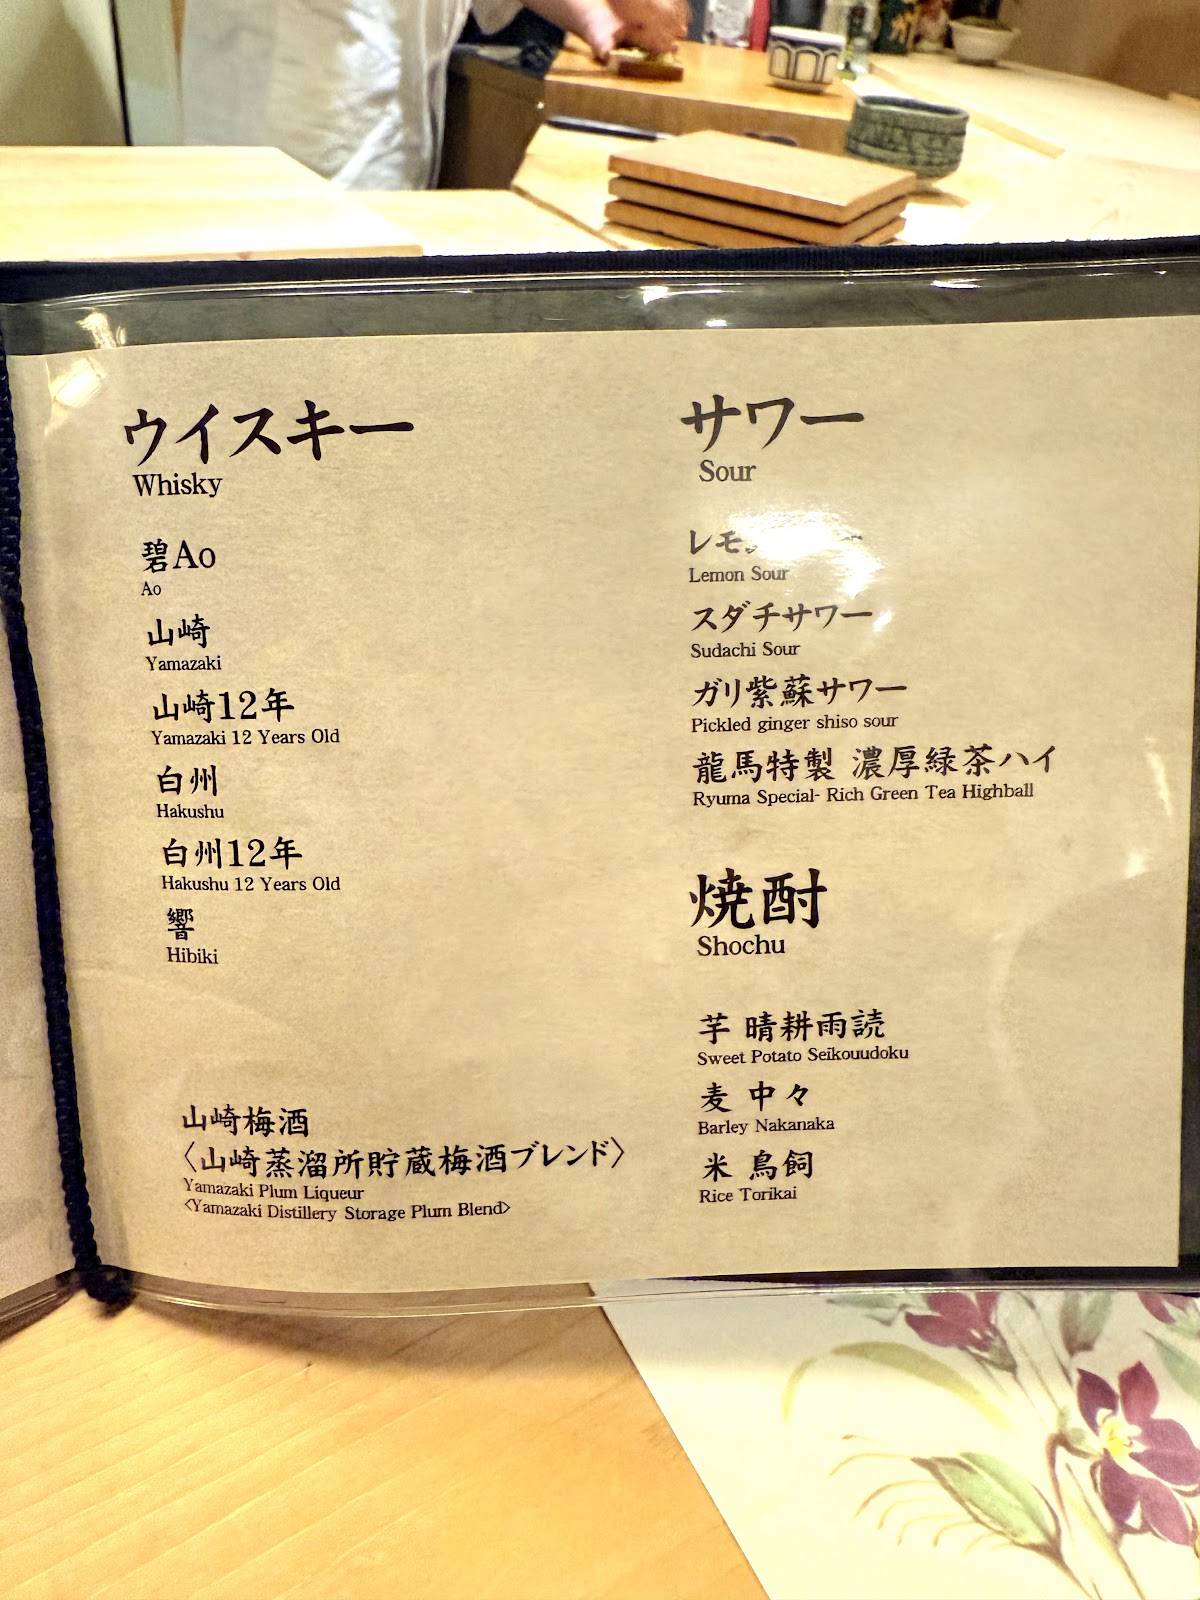 ウイスキー
Whisky
碧Ao
Ao
山崎
Yamazaki
山崎12年
Yamazaki 12 Years Old
白州
Hakushu
白州12年
Hakushu 12 Years Old
響
Hibiki
山崎梅酒
〈山崎蒸溜所貯蔵梅酒ブレンド〉
Yamazaki Plum Liqueur
<Yamazaki Distillery Storage Plum Blend>
サワー
Sour
Lemon Sour
スダチサワー
Sudachi Sour
ガリ紫蘇サワー
Pickled ginger shiso sour
龍馬特製 濃厚緑茶ハイ
Ryuma Special- Rich Green Tea Highball
焼酎
Shochu
芋 晴耕雨読
Sweet Potato Seikouudoku
麦 中々
Barley Nakanaka
米 鳥飼
Rice Torikai